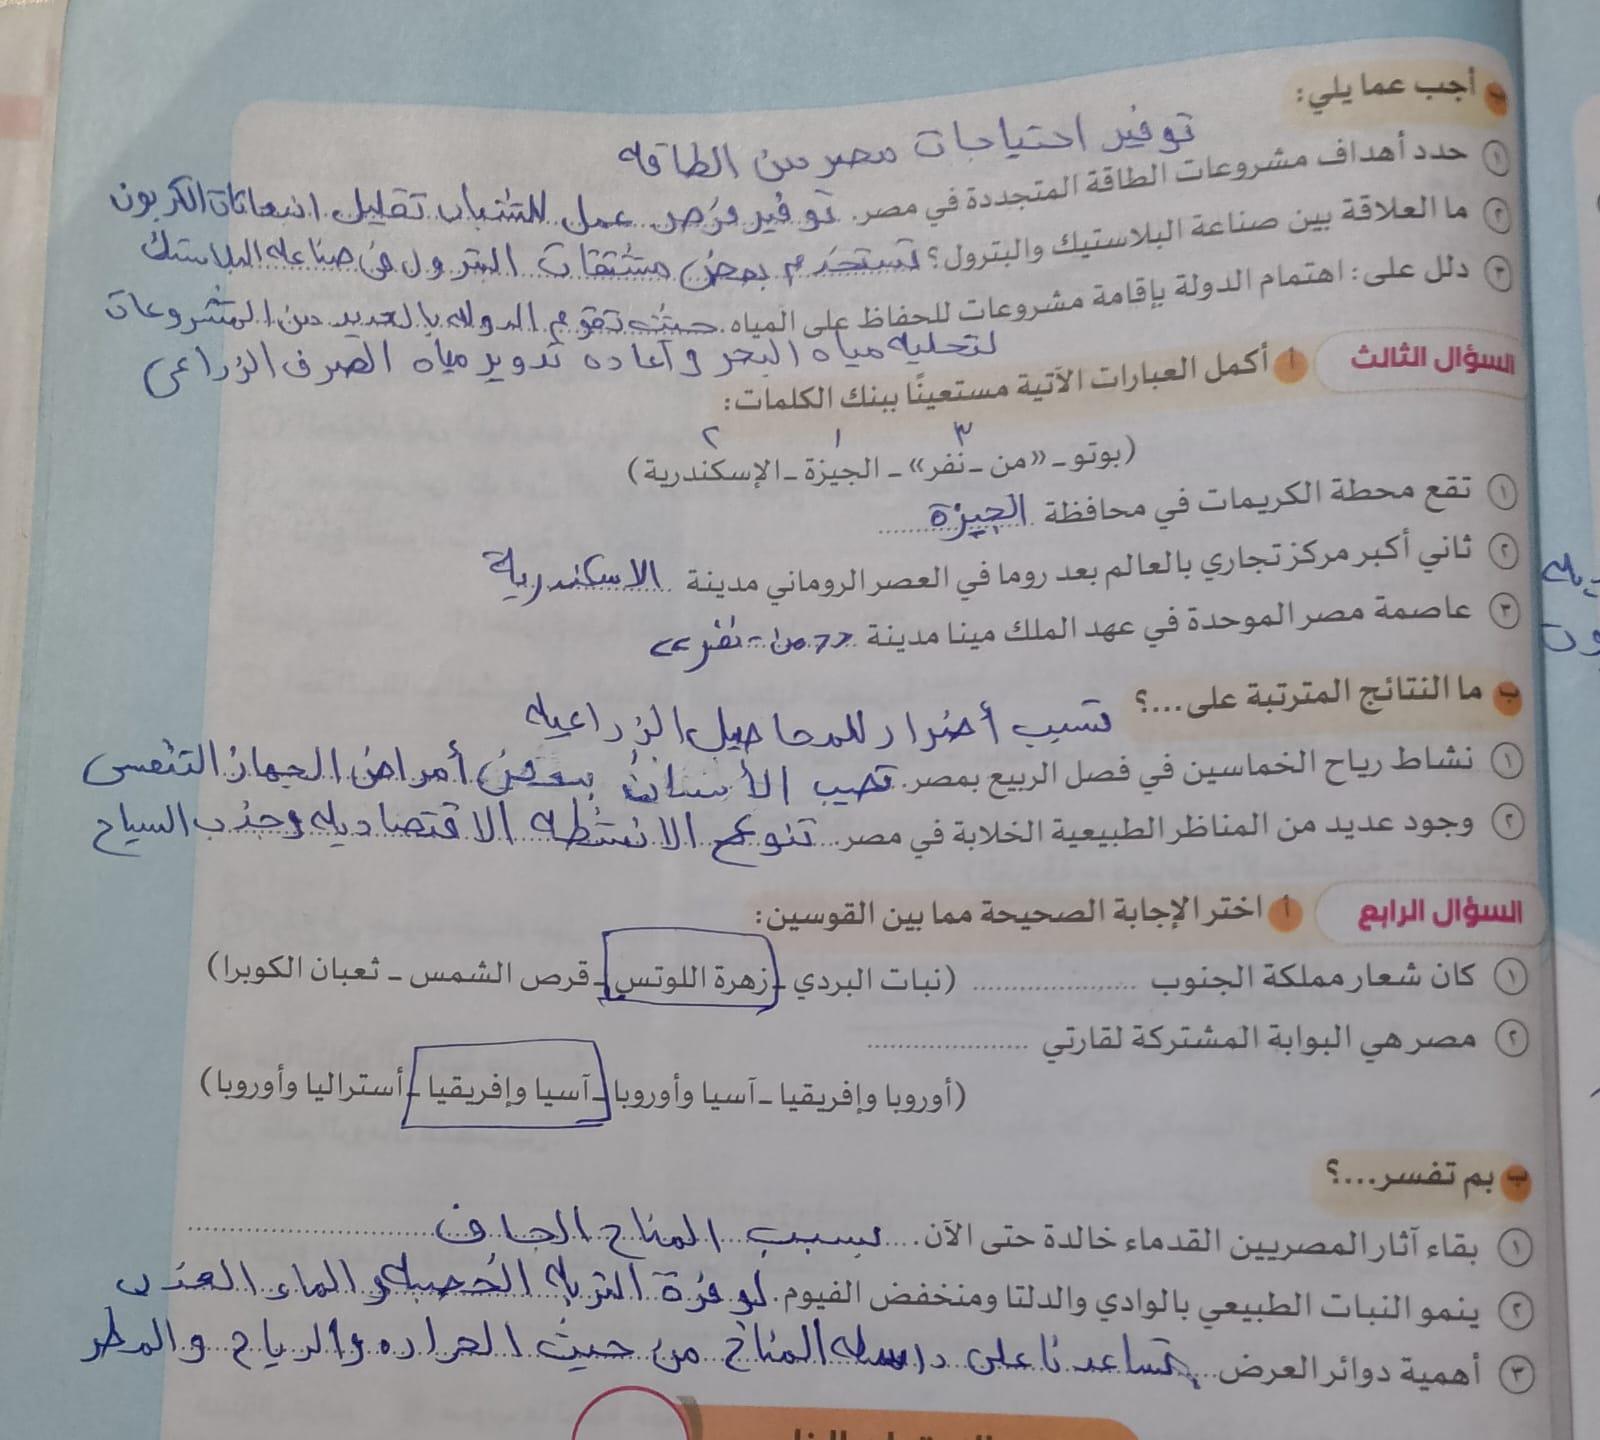 ب أجب عما يلي:
توفير احتياجات مصر من الطاقه
١ حدد أهداف مشروعات الطاقة المتجددة في مصر. توفير فرص عمل للشباب تقليل انبعاثات الكربون
٢ ما العلاقة بين صناعة البلاستيك والبترول؟ تستخدم بعض مشتقات البترول في صناعه البلاستك
٣ دلل على: اهتمام الدولة بإقامة مشروعات للحفاظ على المياه. حيث تقوم الدوله بالعديد من المشروعات
لتحليه مياه البحر و اعاده تدوير مياه الصرف الزراعي
السؤال الثالث أ أكمل العبارات الآتية مستعينًا ببنك الكلمات:
٣ ١ ٢
(بوتو - «من - نفر» - الجيزة - الإسكندرية)
١ تقع محطة الكريمات في محافظة الجيزة
٢ ثاني أكبر مركز تجاري بالعالم بعد روما في العصر الروماني مدينة الاسكندرية
٣ عاصمة مصر الموحدة في عهد الملك مينا مدينة «من - نفر»
ب ما النتائج المترتبة على...؟
تسبب أضرار للمحاصيل الزراعيه
١ نشاط رياح الخماسين في فصل الربيع بمصر. تصيب الأنسان ببعض أمراض الجهاز التنفسى
٢ وجود عديد من المناظر الطبيعية الخلابة في مصر. تنوع الانشطه الاقتصاديه وجذب السياح
السؤال الرابع أ اختر الإجابة الصحيحة مما بين القوسين:
١ كان شعار مملكة الجنوب .................... (نبات البردي - زهرة اللوتس - قرص الشمس - ثعبان الكوبرا)
٢ مصر هي البوابة المشتركة لقارتي ....................
(أوروبا وإفريقيا - آسيا وأوروبا - آسيا وإفريقيا - أستراليا وأوروبا)
ب بم تفسر...؟
١ بقاء آثار المصريين القدماء خالدة حتى الآن. بسبب المناخ الجاف
٢ ينمو النبات الطبيعي بالوادي والدلتا ومنخفض الفيوم. لوفرة التربه الخصبه و الماء العذب
٣ أهمية دوائر العرض. تساعدنا على دراسه المناخ من حيث الحراره والرياح والمطر